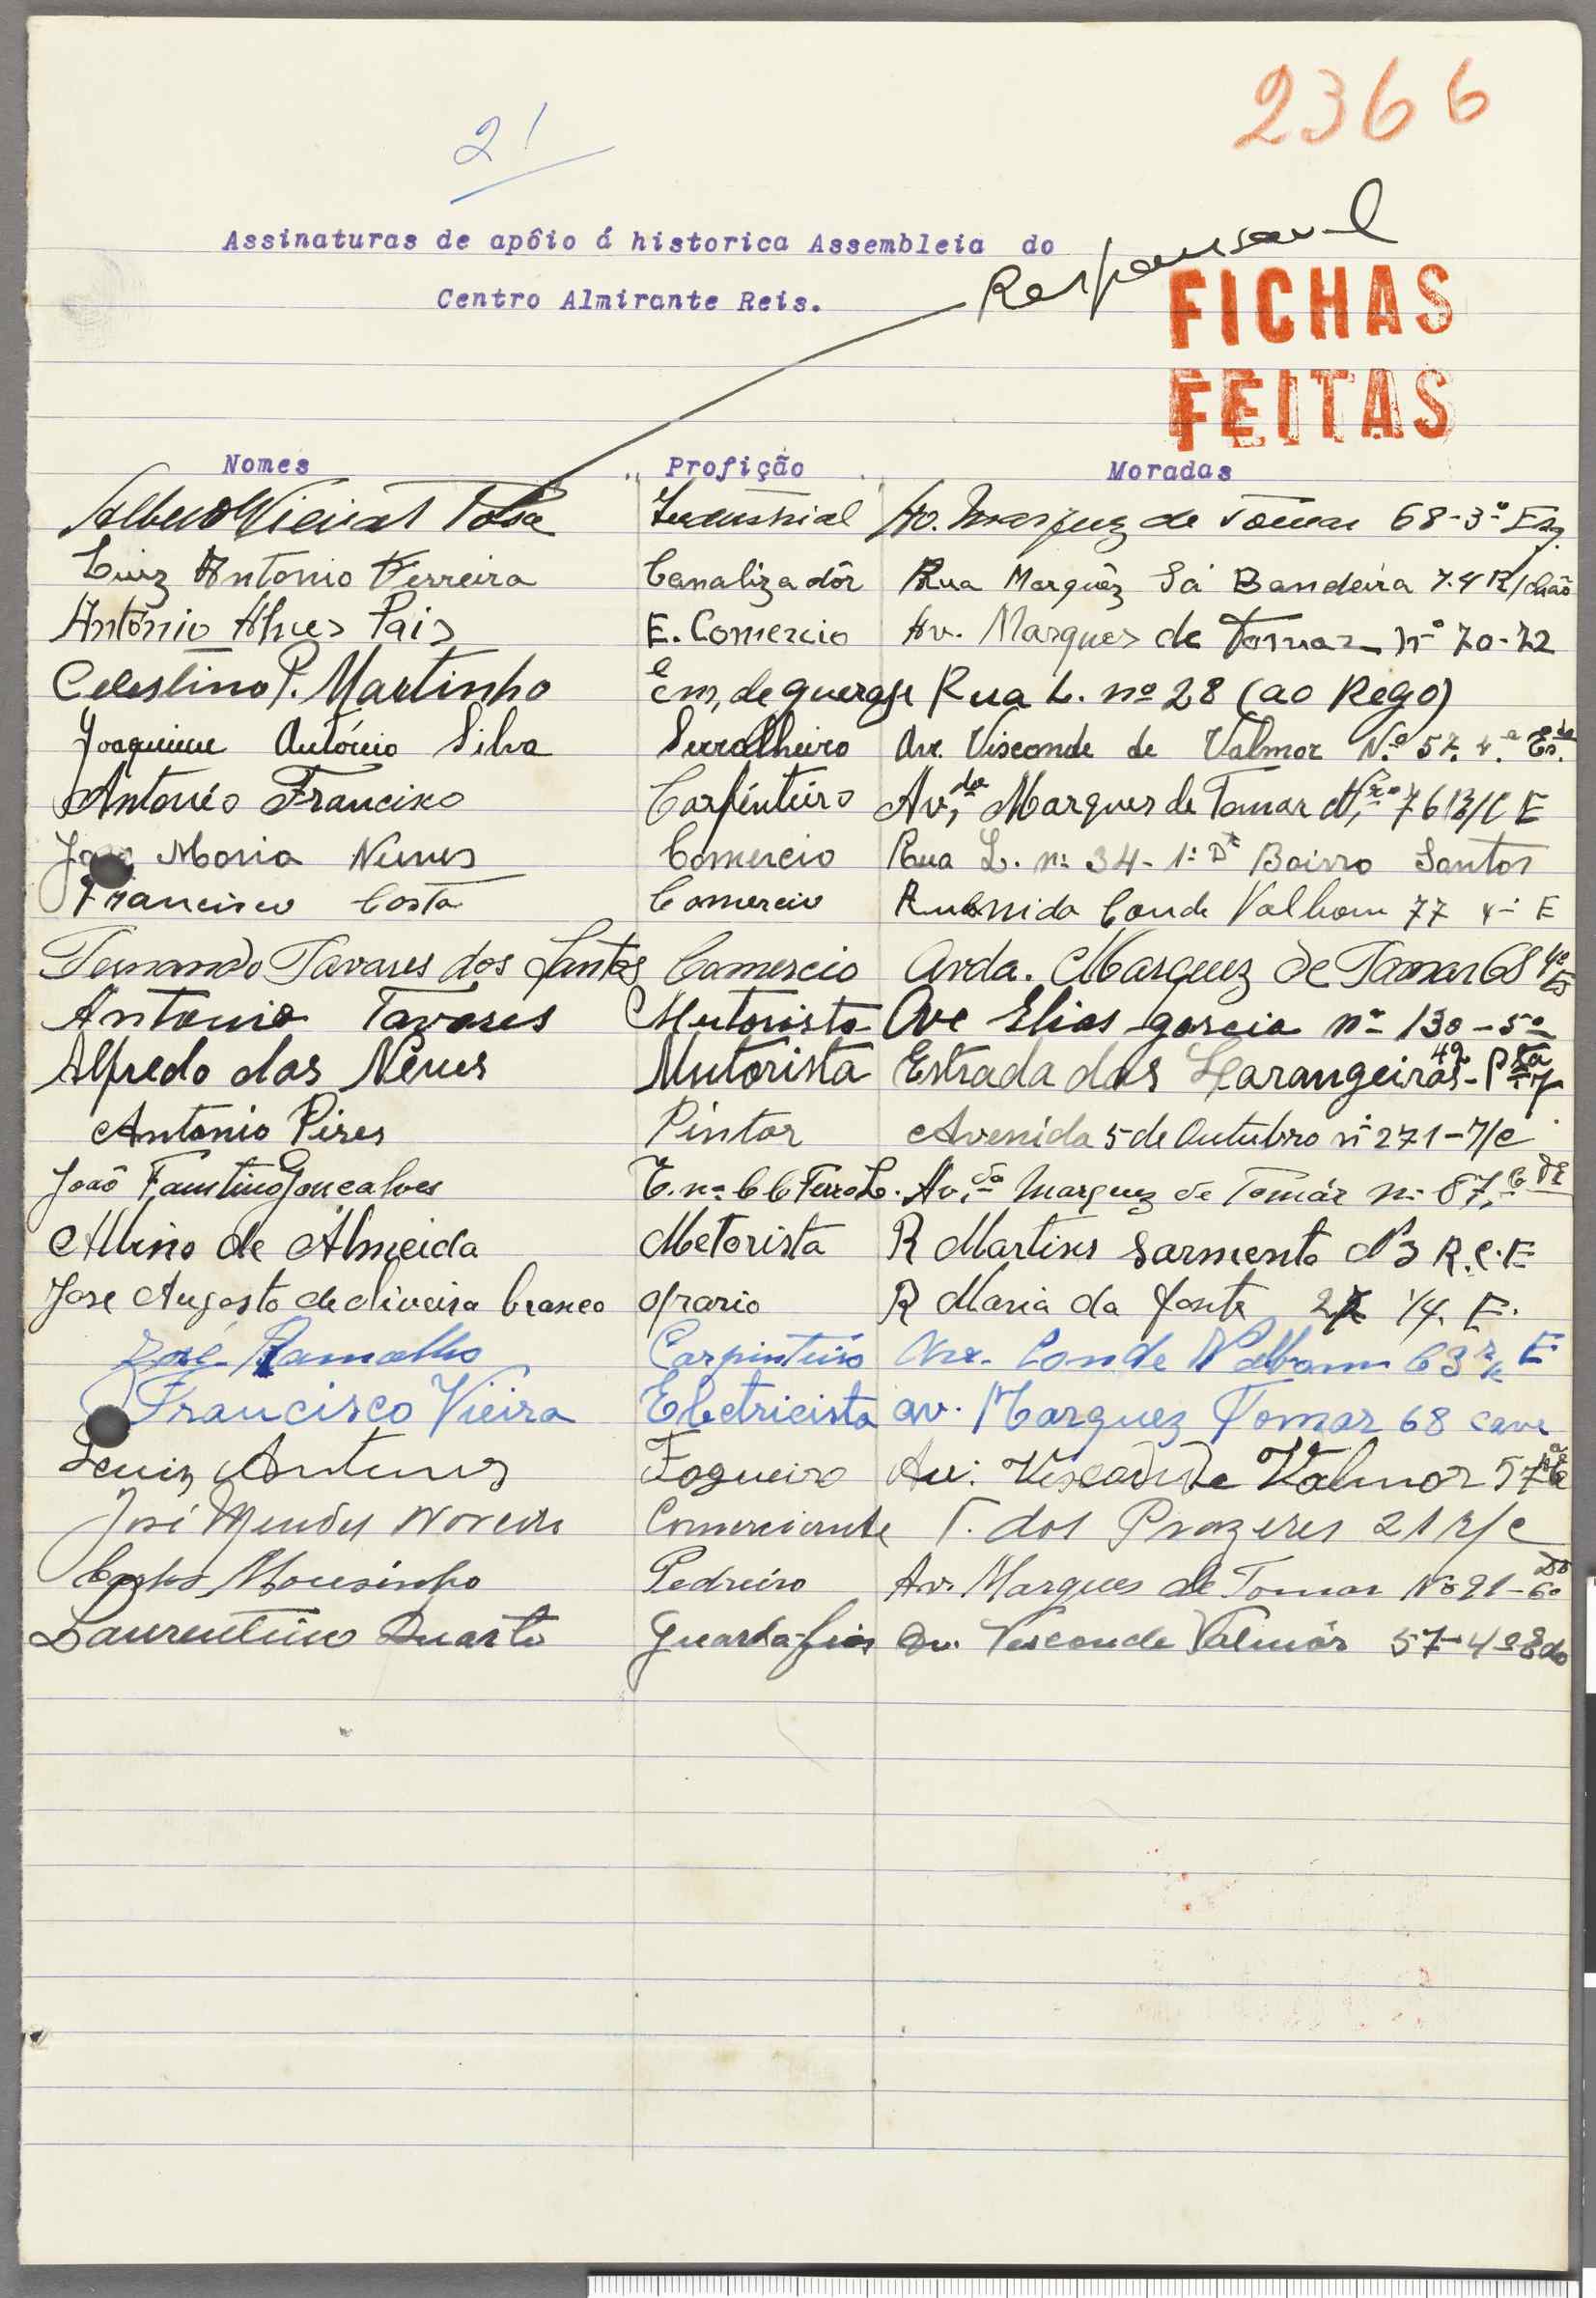 2366
21
Assinaturas de apôio á historica Assembleia do
Responsavel
Centro Almirante Reis.
FICHAS
FEITAS
Nomes Profição Moradas
Industrial Av. Marquez de Tomar 68-3º Esq.
Luiz Antonio Ferreira Canalizadôr Rua Marquêz Sá Bandeira 74 R/chão
António Alves Pais E. Comercio Av. Marques de Tomar nº 70-72
Celestino P. Martinho Em, de guerage Rua L. nº 28 (ao Rego)
Joaquim António Silva Serralheiro Av. Visconde de Valmor Nº 57. 4.º
António Francisco Carpinteiro Av, da Marques de Tomar 76 R/C E
Maria Nunes Comercio Rua L. nº 34-1º Dt Bairro Santos
Francisco Costa Comercio Avenida Conde Valbom 77 4º E
Fernando Tavares dos Santos Comercio Avda. Marquez de Tomar 68 4º
Antonio Tavares Mutorista Ave Elias garcia nº 130-5º
Alfredo das Neves Mutorista Estrada das Larangeiras 49
Antonio Pires Pintor Avenida 5 de Outubro nº 271-r/c
João Faustino Goncalves Av, da Marquez de Tomár nº 87,
Albino de Almeida Metorista R Martins Sarmento Nº 3 R.C.E
Jose Augosto de oliveira branco oprario R Maria da fonte
José Ramalho Carpinteiro Av. Conde Valbom 63 r/c E
Francisco Vieira Eletricista av. Marquez Tomar 68 cave
Luiz Antunes Fogueiro Av. Visconde de Valmor 57
José Mendes Comerciante T. dos Prazeres 21 R/c
Carlos Mousinho Pedreiro Av. Marques de Tomar Nº 91-6º
Laurentino Duarte Guarda-fios Av. Visconde Valmôr 57-4º Edo